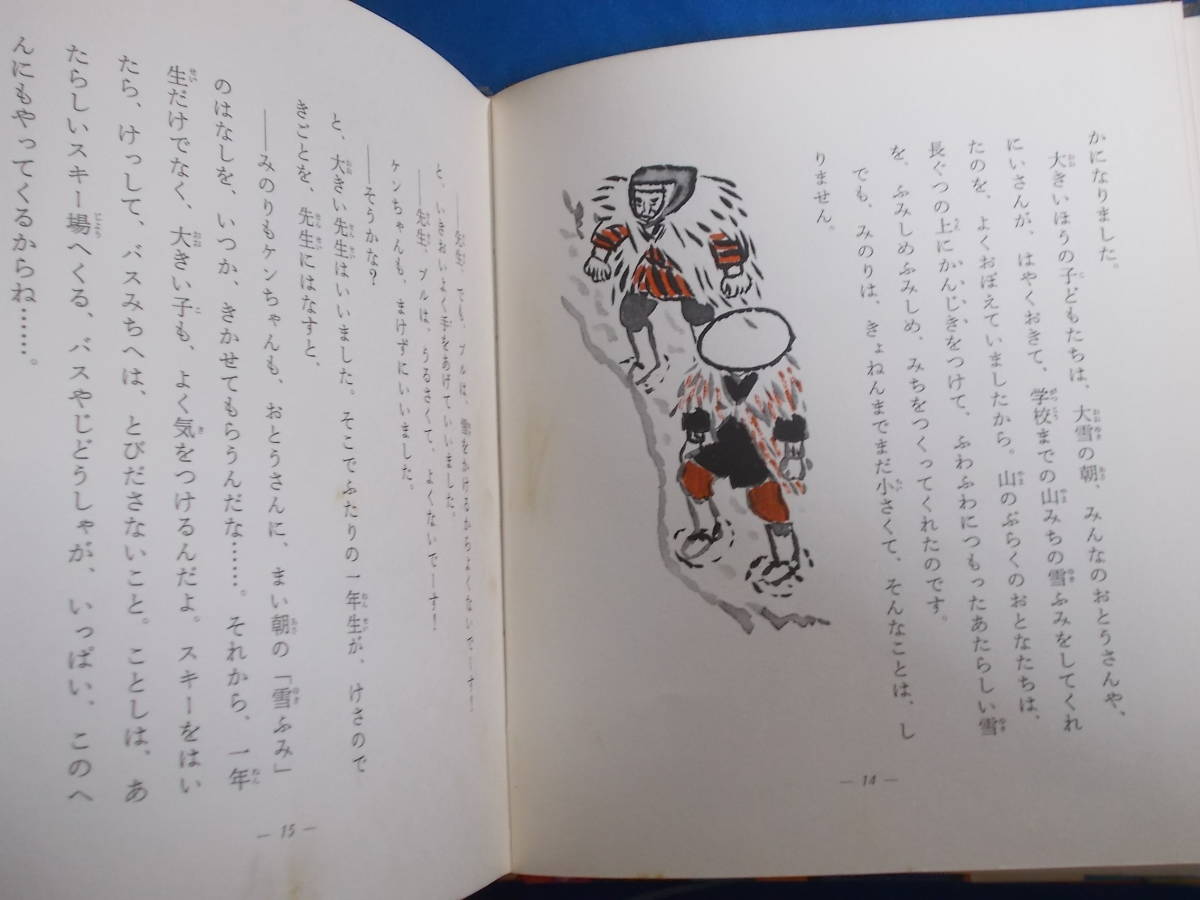 かになりました。
大きいほうの子どもたちは、大雪の朝、みんなのおとうさんや、
にいさんが、はやくおきて、学校までの山みちの雪ふみをしてくれ
たのを、よくおぼえていましたから。山のぶらくのおとなたちは、
長ぐつの上にかんじきをつけて、ふわふわにつもったあたらしい雪
を、ふみしめふみしめ、みちをつくってくれたのです。
でも、みのりは、きょねんまでまだ小さくて、そんなことは、し
りません。
— 14 —
——先生、でも、ブルは、雪をかけるからよくないでーす！
と、いきおいよく手をあげていいました。
——先生、ブルは、うるさくて、よくないでーす！
ケンちゃんも、まけずにいいました。
——そうかな？
と、大きい先生はいいました。そこでふたりの一年生が、けさので
きごとを、先生にはなすと、
——みのりもケンちゃんも、おとうさんに、まい朝の「雪ふみ」
のはなしを、いつか、きかせてもらうんだな……。それから、一年
生だけでなく、大きい子も、よく気をつけるんだよ。スキーをはい
たら、けっして、バスみちへは、とびださないこと。ことしは、あ
たらしいスキー場へくる、バスやじどうしゃが、いっぱい、このへ
んにもやってくるからね……。
— 15 —